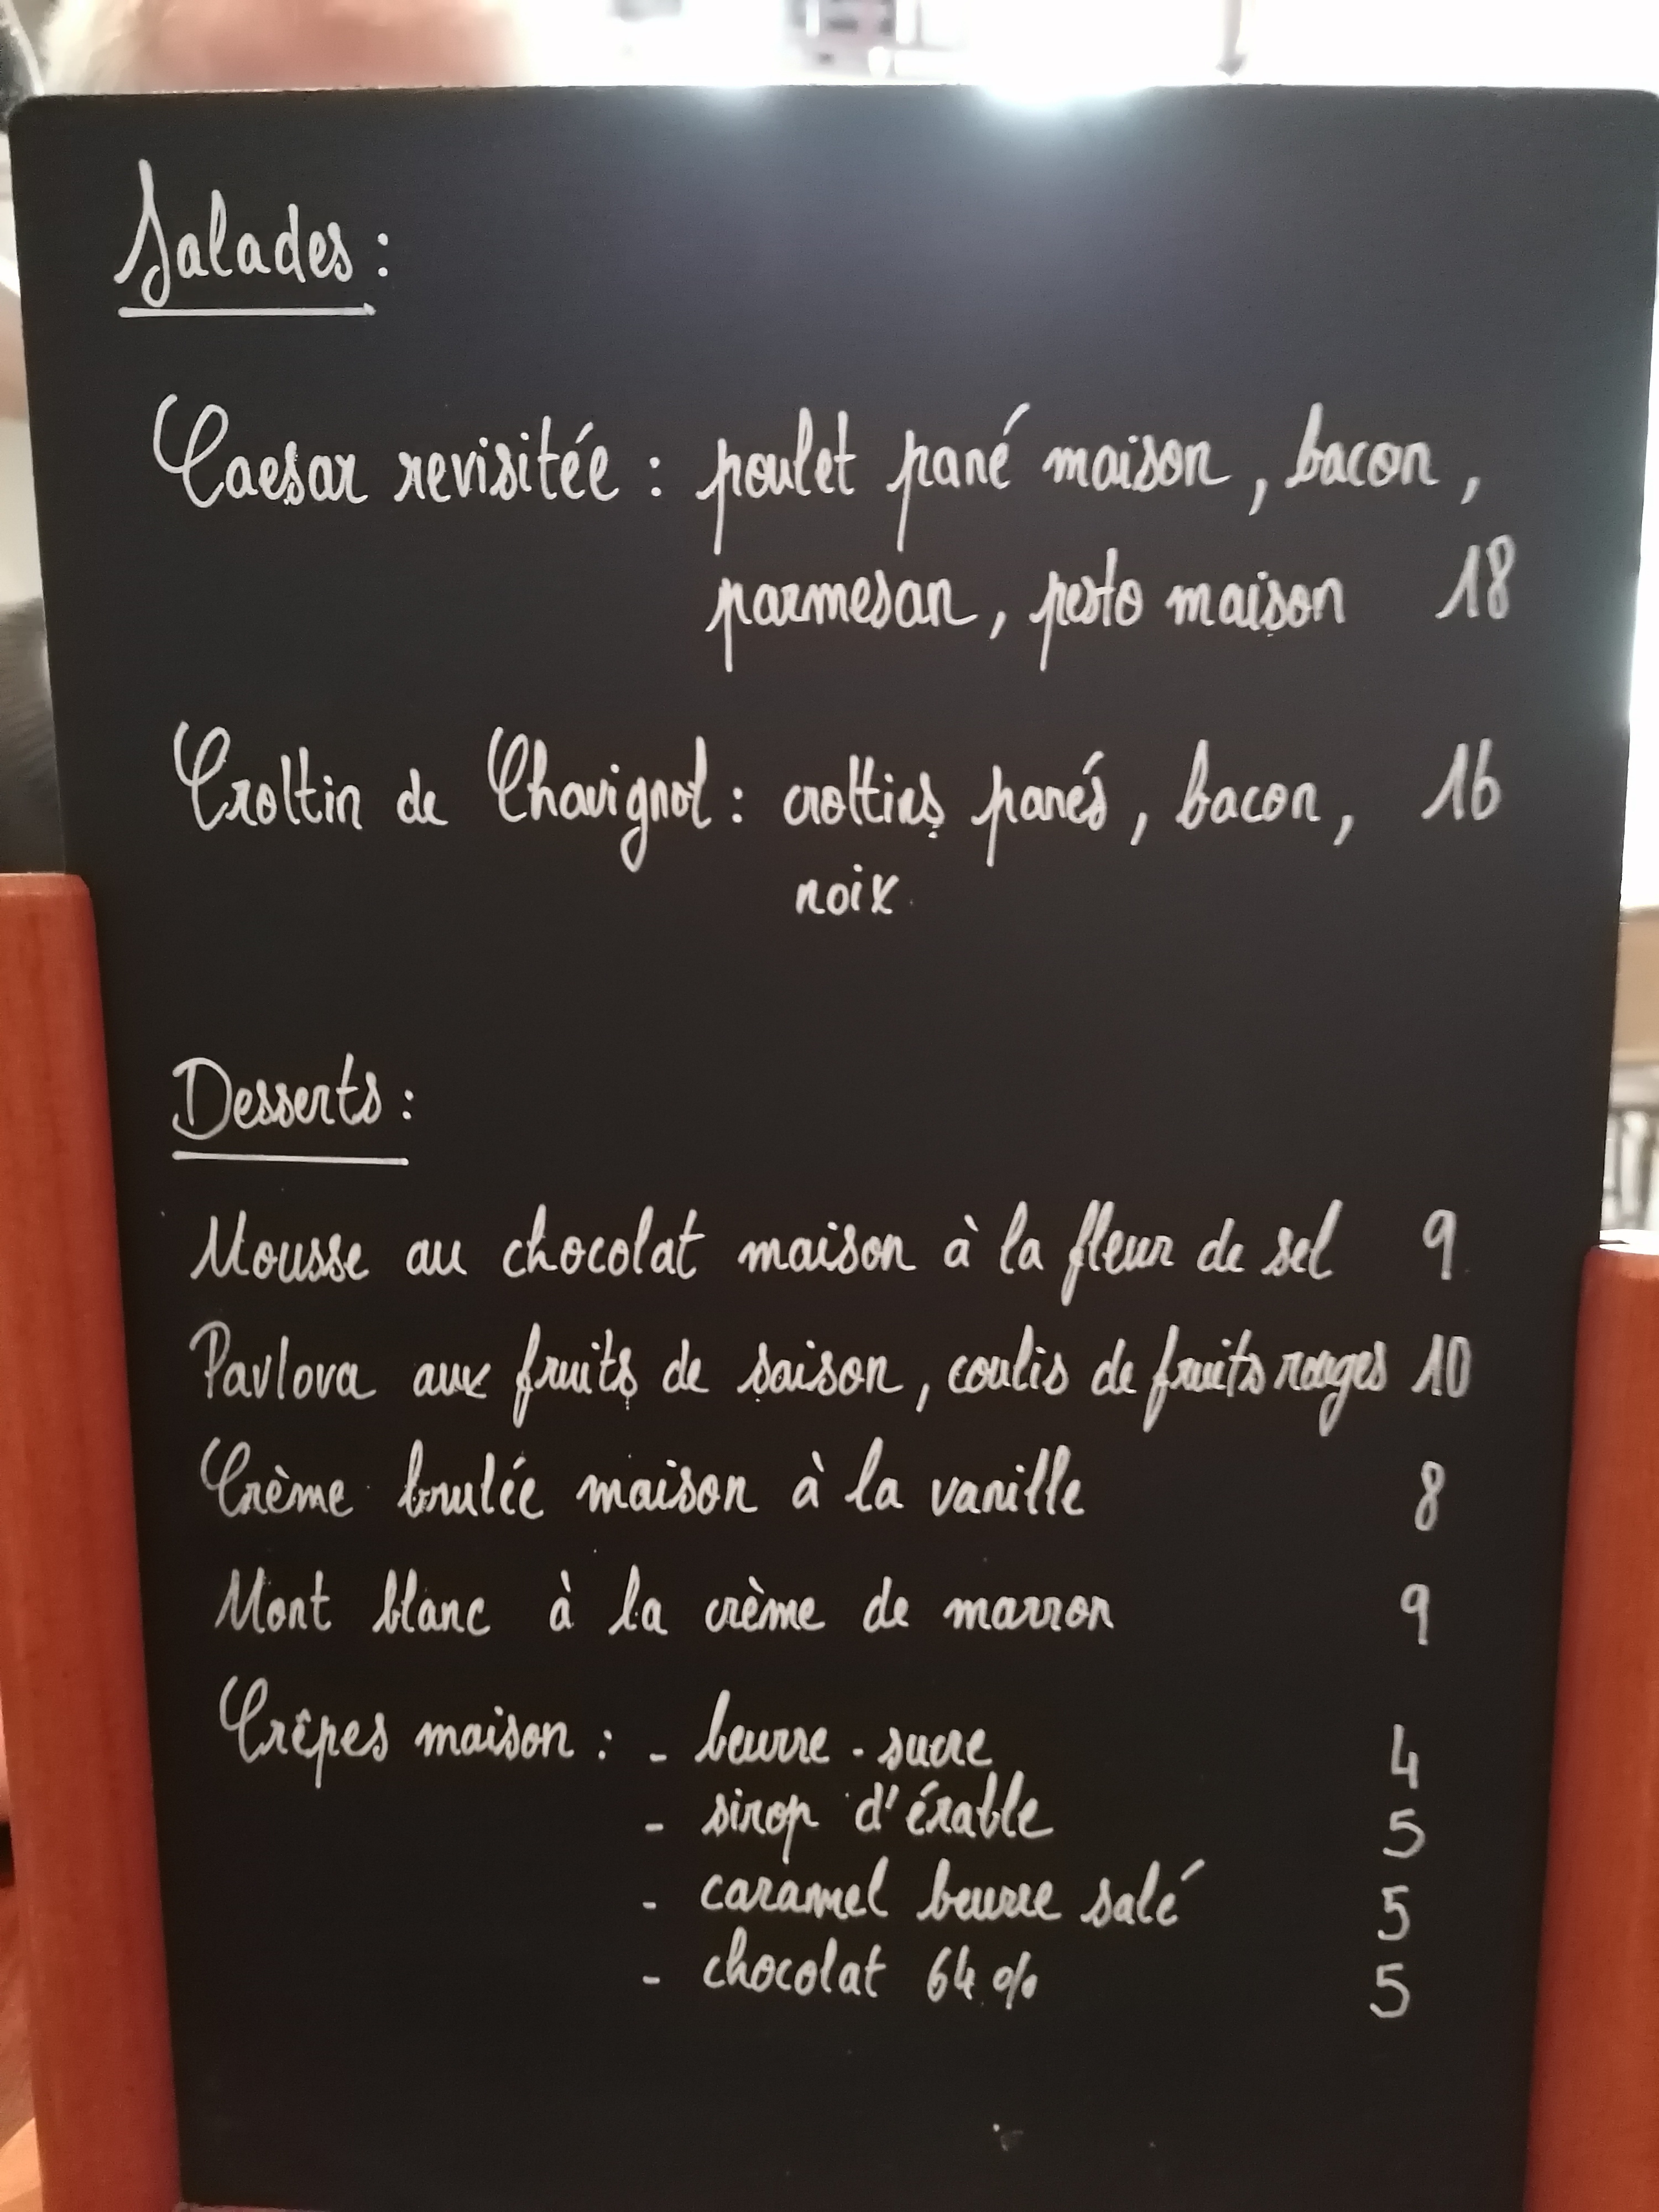 Salades :
Caesar revisitée : poulet pané maison, bacon,
parmesan, pesto maison 18
Crottin de Chavignol : crottins panés, bacon, 16
noix
Desserts :
Mousse au chocolat maison à la fleur de sel 9
Pavlova aux fruits de saison, coulis de fruits rouges 10
Crème brulée maison à la vanille 8
Mont blanc à la crème de marron 9
Crêpes maison : - beurre - sucre 4
- sirop d'érable 5
- caramel beurre salé 5
- chocolat 64 % 5